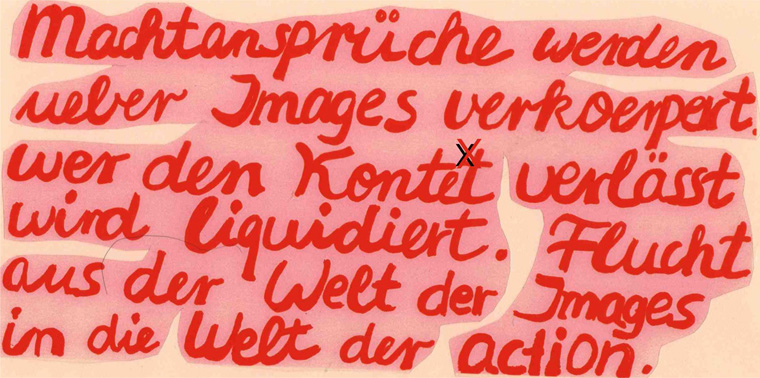 Machtansprüche werden
ueber Images verkoerpert.
wer den Kontext verlässt
wird liquidiert. Flucht
aus der Welt der Images
in die Welt der action.